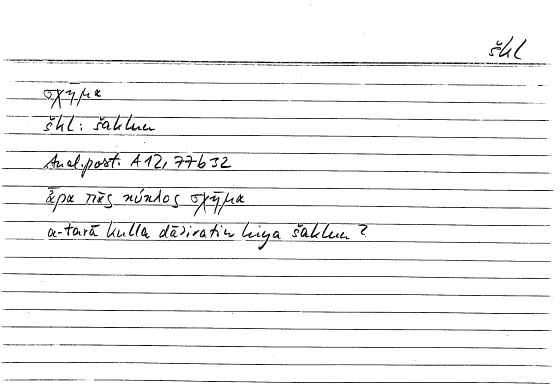 škl
σχῆμα
škl: šaklun
Anal.post. A12, 77b32
ἆρα πᾶς κύκλος σχῆμα
a-tarā kulla dāʾiratin hiya šaklun?